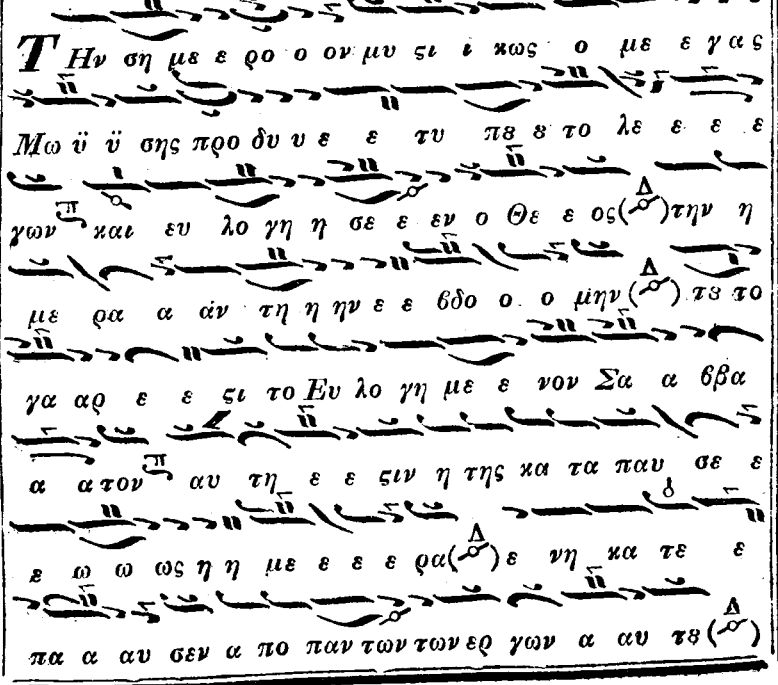 Την ση με ε ρο ο ον μυ ϛι ι κως ο με ε γα ς
Μω ϋ ϋ σης προ δυ υ ε ε τυ πȣ ȣ το λε ε ε ε
γων π και ευ λο γη η σε ε εν ο Θε ε ος (Δ) την η
με ρα α άν τη η ην ε ε βδο ο ο μην (Δ) τȣ το
γα αρ ε ε ϛι το Ευ λο γη με ε νον Σα α ββα
α α τον π αυ τη ε ε ϛιν η της κα τα παυ σε ε
ε ω ω ως η η με ε ε ε ρα (Δ) ε νη κα τε ε
πα α αυ σεν α πο παν των των ερ γων α αυ τȣ (Δ)